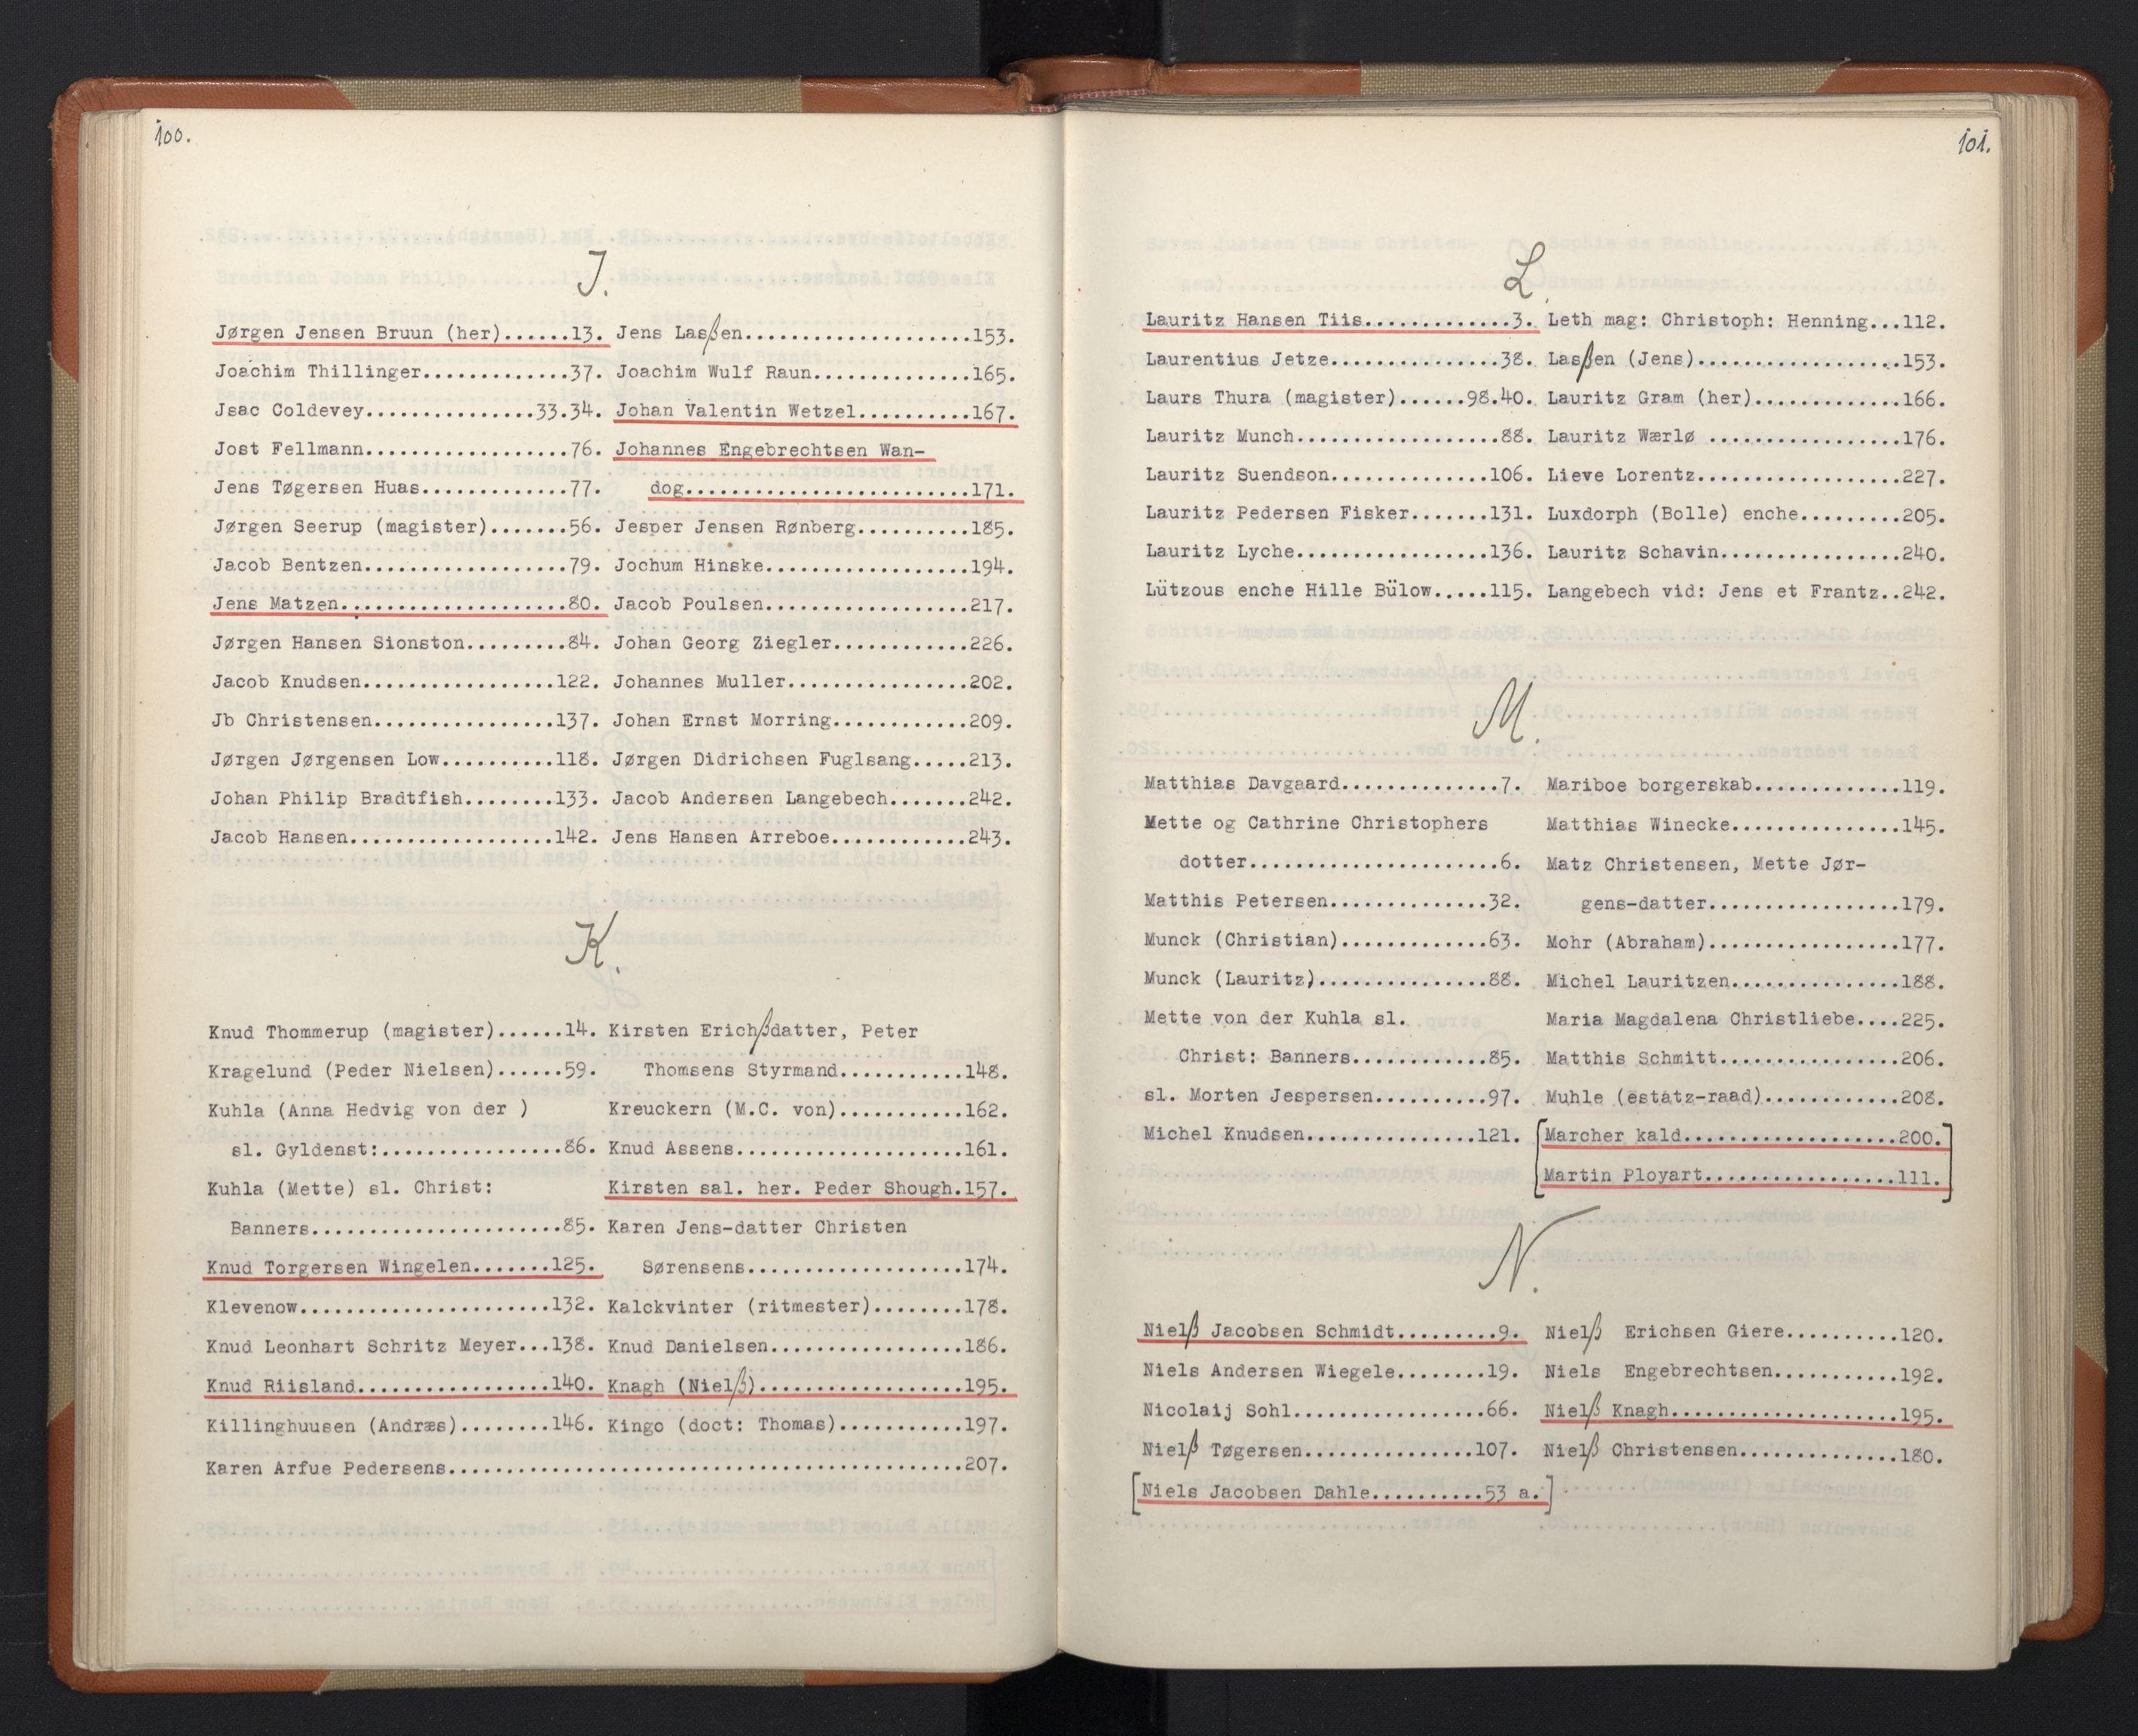 100.
J.
Jørgen Jensen Bruun (her)......13.
Joachim Thillinger.............37.
Jsac Coldevey...............33.34.
Jost Fellmann..................76.
Jens Tøgersen Huas.............77.
Jørgen Seerup (magister).......56.
Jacob Bentzen..................79.
Jens Matzen....................80.
Jørgen Hansen Sionston.........84.
Jacob Knudsen.................122.
Jb Christensen................137.
Jørgen Jørgensen Low..........118.
Johan Philip Bradtfish........133.
Jacob Hansen..................142.
Jens Lasßen....................153.
Joachim Wulf Raun..............165.
Johan Valentin Wetzel..........167.
Johannes Engebrechtsen Wan-
dog.........................171.
Jesper Jensen Rønberg..........185.
Jochum Hinske..................194.
Jacob Poulsen..................217.
Johan Georg Ziegler............226.
Johannes Muller................202.
Johan Ernst Morring............209.
Jørgen Didrichsen Fuglsang.....213.
Jacob Andersen Langebech.......242.
Jens Hansen Arreboe............243.
K.
Knud Thommerup (magister)......14.
Kragelund (Peder Nielsen)......59.
Kuhla (Anna Hedvig von der )
sl. Gyldenst:................86.
Kuhla (Mette) sl. Christ:
Banners......................85.
Knud Torgersen Wingelen.......125.
Klevenow......................132.
Knud Leonhart Schritz Meyer...138.
Knud Riisland.................140.
Killinghuusen (Andræs)........146.
Kirsten Erichßdatter, Peter
Thomsens Styrmand...........148.
Kreuckern (M.C. von)...........162.
Knud Assens....................161.
Kirsten sal. her. Peder Shough.157.
Karen Jens-datter Christen
Sørensens...................174.
Kalckvinter (ritmester)........178.
Knud Danielsen.................186.
Knagh (Nielß)..................195.
Kingo (doct: Thomas)...........197.
Karen Arfue Pedersens..............................................207.
101.
L.
Lauritz Hansen Tiis.............3.
Laurentius Jetze...............38.
Laurs Thura (magister)......98.40.
Lauritz Munch..................88.
Lauritz Suendson..............106.
Lauritz Pedersen Fisker.......131.
Lauritz Lyche.................136.
Lützous enche Hille Bülow.....115.
Leth mag: Christoph: Henning...112.
Lasßen (Jens)..................153.
Lauritz Gram (her).............166.
Lauritz Wærlø .................176.
Lieve Lorentz..................227.
Luxdorph (Bolle) enche.........205.
Lauritz Schavin................240.
Langebech vid: Jens et Frantz..242.
M.
Matthias Davgaard..............7.
Mette og Cathrine Christophers
dotter......................6.
Matthis Petersen..............32.
Munck (Christian).............63.
Munck (Lauritz)...............88.
Mette von der Kuhla sl.
Christ: Banners............85.
sl. Morten Jespersen..........97.
Michel Knudsen...............121.
Mariboe borgerskab.............119.
Matthias Winecke...............145.
Matz Christensen, Mette Jør-
gens-datter.................179.
Mohr (Abraham).................177.
Michel Lauritzen...............188.
Maria Magdalena Christliebe....225.
Matthis Schmitt................206.
Muhle (estatz-raad)............208.
[Marcher kald...................200.]
[Martin Ployart.................111.]
N.
Nielß Jacobsen Schmidt.........9.
Niels Andersen Wiegele........19.
Nicolaij Sohl.................66.
Nielß Tøgersen...............107.
[Niels Jacobsen Dahle..........53 a.]
Nielß Erichsen Giere..........120.
Niels Engebrechtsen...........192.
Nielß Knagh....................195.
Nielß Christensen..............180.